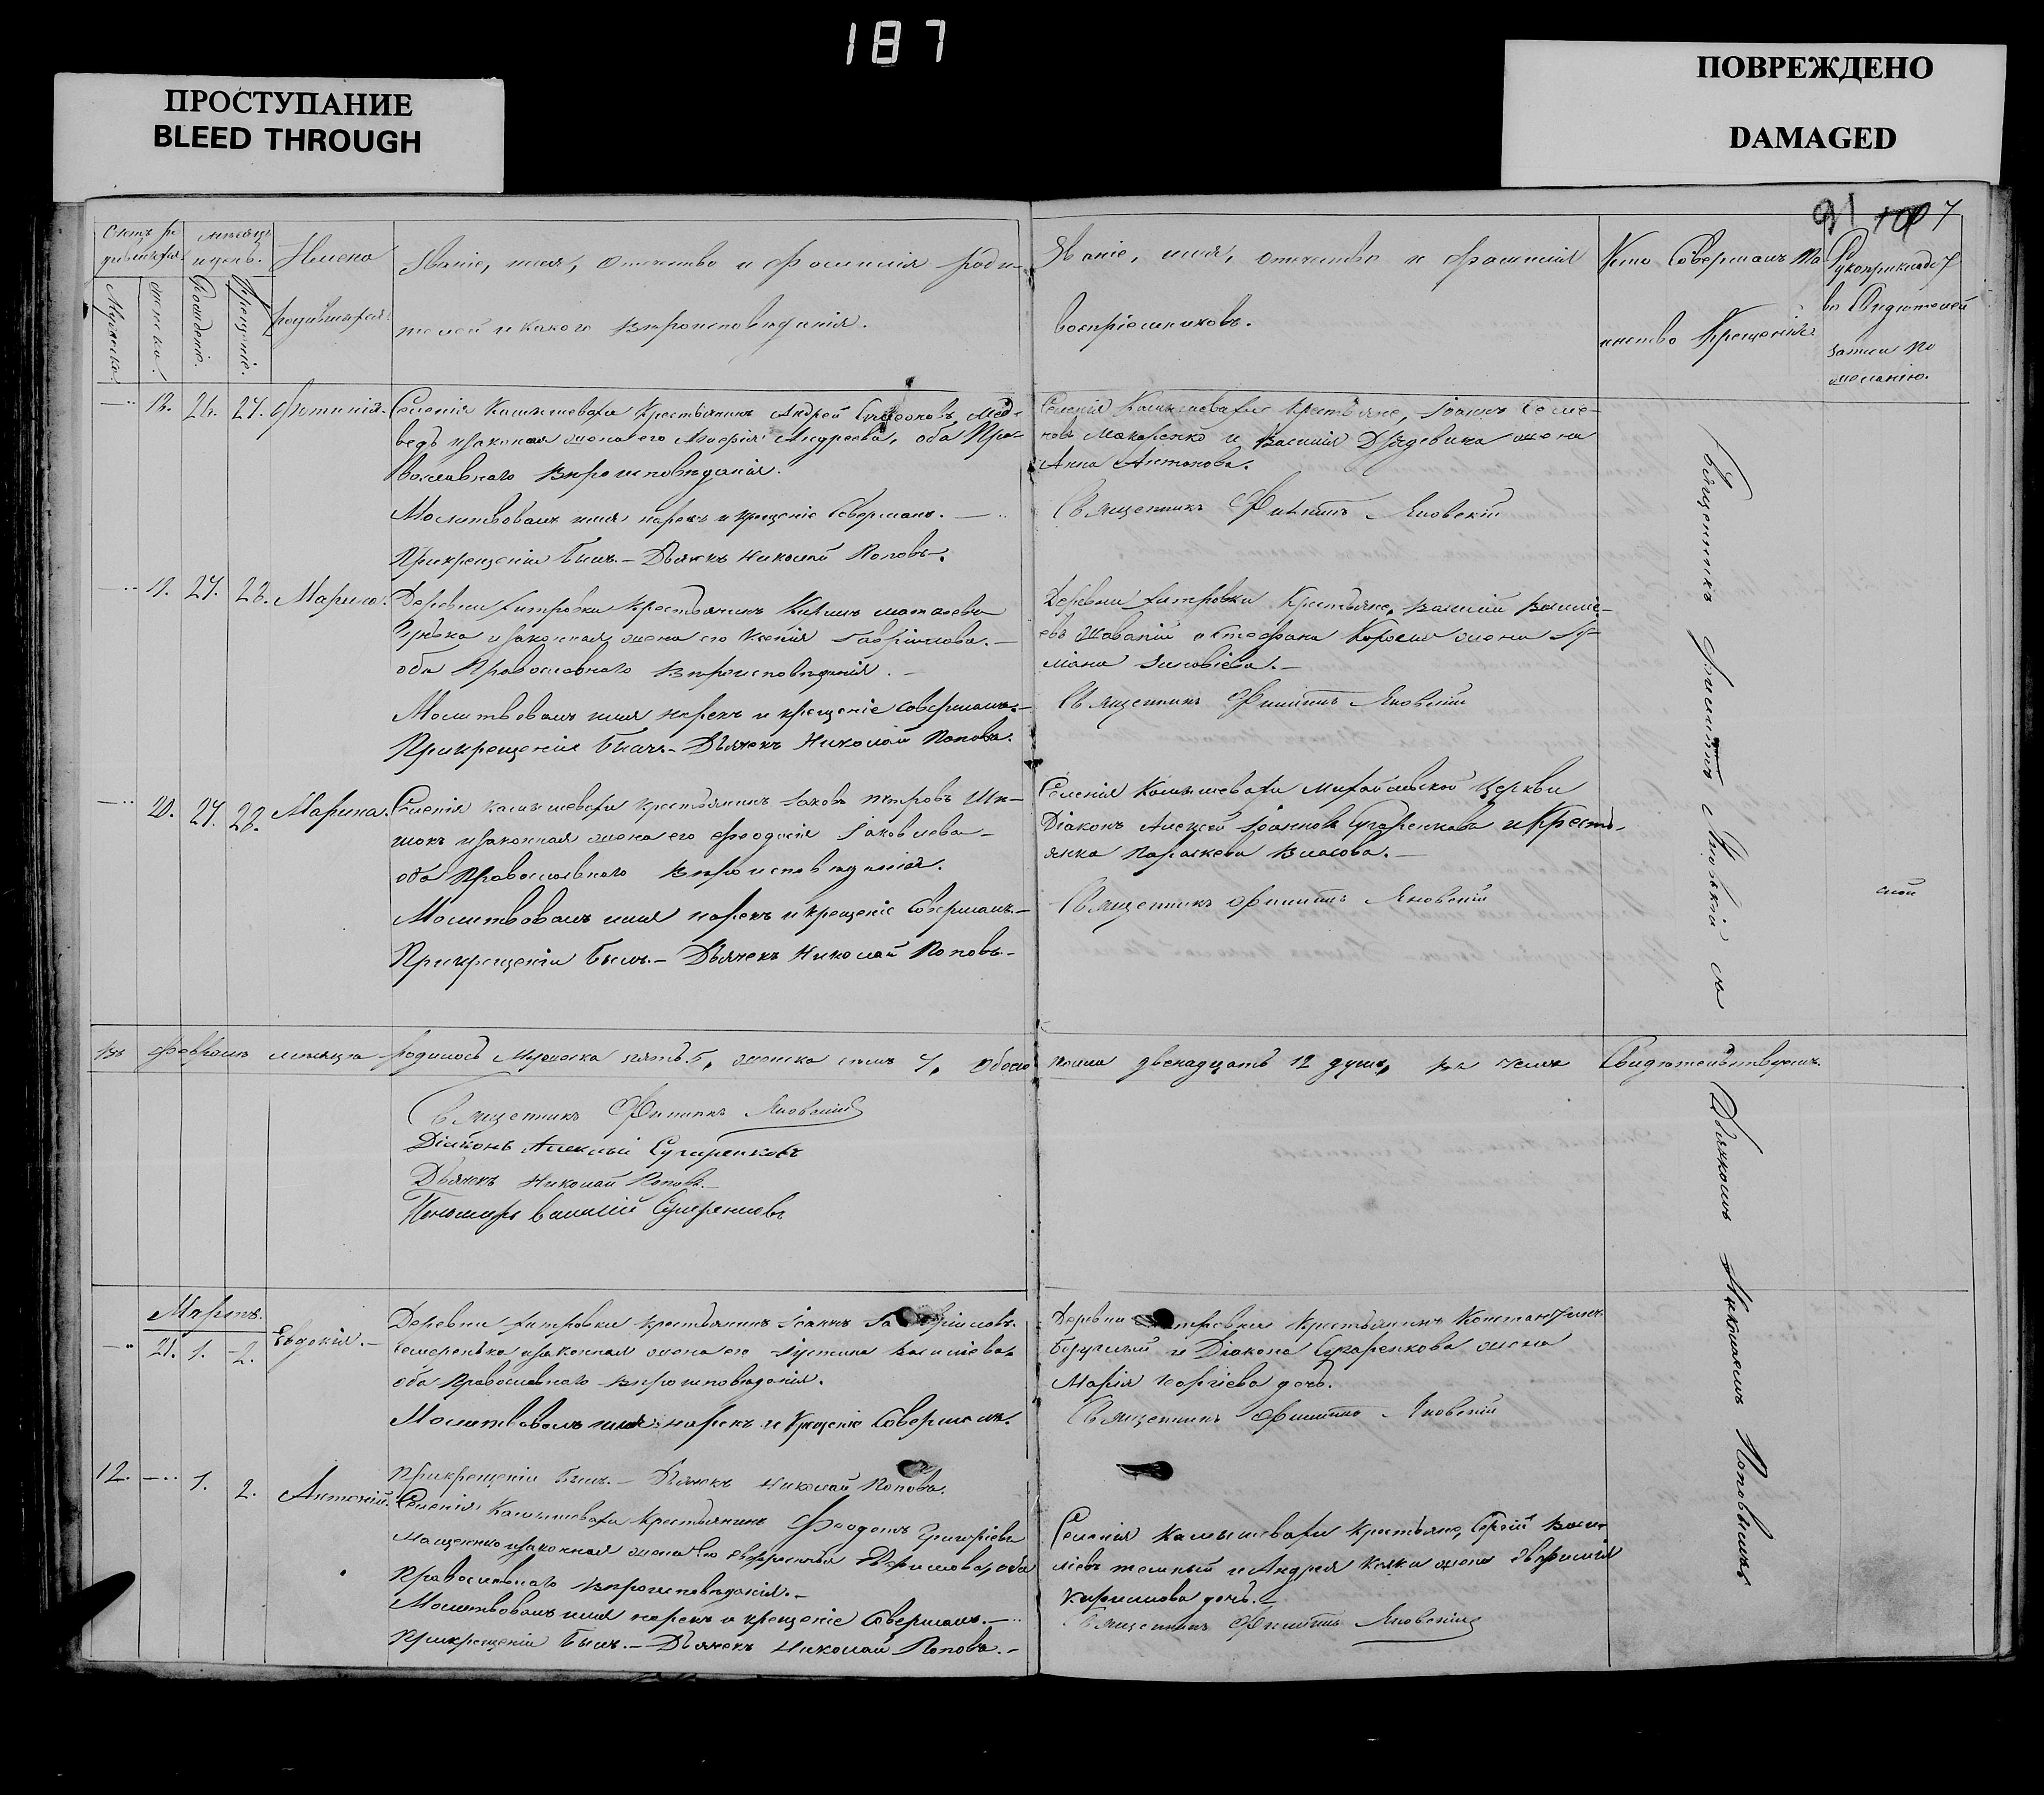 187
ПРОСТУПАНИЕ
BLEED THROUGH
ПОВРЕЖДЕНО
DAMAGED
91 7
Счетъ ро
дившихся.
мѣсяцъ
и день.
Мужеска.
женска.
Рожденіе.
Крещеніе.
Имена
родившихся.
Званіе, имя, отечество и фамилія роди-
телей и какого вѣроисповѣданія.
Званіе, имя, отечество и фамилія
воспріемниковъ.
Кто совершалъ та-
инство Крещенія.
Рукоприклад
во Свидѣтелей
записи по
желанію.
18. 26. 27. Фотинія.
Селенія Камышевахи Крестьянинъ Андрей Мед-
ведь и законная жена его Андреева, оба Пра-
вославнаго вѣроисповѣданія.
Молитвовалъ имя нарекъ и крещеніе совершалъ.
При крещеніи былъ.- Дьячекъ Николай Поповъ.
Селенія Камышевахи Крестьяне, Іоаннъ Семе-
новъ Макаренко и Василія жена
Анна Антонова.
Священникъ Филиппъ Яновскій
19. 27. 28. Марина.
Деревни Хитровки Крестьянинъ Кирилъ
и законная жена его Ксенія Гавріилова.-
оба Православнаго вѣроисповѣданія.-
Молитвовалъ имя нарекъ и крещеніе совершалъ.-
При крещеніи былъ.- Дьячекъ Николай Поповъ.
Деревни Хитровки Крестьяне, Василій Василі-
евъ и Стефана жена
Священникъ Филиппъ Яновскій
20. 27. 28. Марина.
Селенія Камышевахи крестьянинъ Іаковъ Петровъ
и законная жена его Феодосія Іаковлева-
оба Православнаго вѣроисповѣданія.
Молитвовалъ имя нарекъ и крещеніе совершалъ.-
При крещеніи былъ.- Дьячекъ Николай Поповъ.-
Селенія Камышевахи Михайлевской Церкви
Діаконъ Алексій Іоанновъ Сухаренковъ и Кресть-
янка Параскева Власова.-
Священникъ Филиппъ Яновскій
Священникъ Филиппъ Яновскій съ
Дьячкомъ Николаемъ Поповымъ
Въ Февралѣ мѣсяцѣ родилось Мужеска пять 5, женска семь 7, обоего пола двенадцать 12 душъ, въ чемъ Свидѣтельствуемъ.
Священникъ Филиппъ Яновскій
Діаконъ Алексій Сухаренковъ
Дьячекъ Николай Поповъ.
Пономарь Василій Сухаренковъ
Мартъ.
21. 1. 2. Евдокія.-
Деревни Хитровки крестьянинъ Іоаннъ Гавріиловъ
и законная жена его Іустина Василіева,
оба Православнаго вѣроисповѣданія.
Молитвовалъ имя нарекъ и Крещеніе совершалъ.
При крещеніи былъ.- Дьячекъ Николай Поповъ.
Деревни Хитровки Крестьянинъ Константинъ
и Діакона Сухаренкова жена
Марія Георгіева дочь.
Священникъ Филиппъ Яновскій
12. 1. 2. Антоній.
Селенія Камышевахи Крестьянинъ Феодотъ Григоріевъ
Мащенко и законная жена его оба
Православнаго вѣроисповѣданія.-
Молитвовалъ имя нарекъ и крещеніе совершалъ.-
При крещеніи былъ.- Дьячекъ Николай Поповъ.-
Селенія Камышевахи Крестьяне, Сергій Васи-
ліевъ темный и Андрея жена
Кирилова дочь.
Священникъ Филиппъ Яновскій